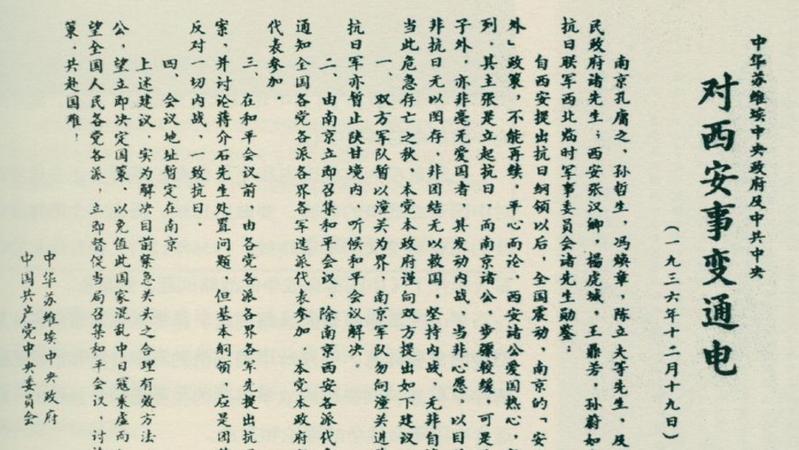 中华苏维埃中央政府及中共中央
对西安事变通电
（一九三六年十二月十九日）
南京孔庸之，孙哲生，冯焕章，陈立夫等先生，及
民政府诸先生；西安张汉卿，杨虎城，王鼎芳，孙蔚如
抗日联军西北临时军事委员会诸先生勋鉴：
自西安提出抗日纲领以后，全国震动，南京的「安
外」政策，不能再续，平心而论，西安诸公爱国热心，
列，其主张是立起抗日 而南京诸公 步骤较缓，可是
子外，亦非毫无爱国者，其发动内战，当非心愿，以目
非抗日无以图存，非团结无以救国，坚持内战，无非自
当此危急存亡之秋，本党本政府谨向双方提出如下建议
一、双方军队暂以潼关为界，南京军队勿向潼关进
抗日军亦暂止陕甘境内，听候和平会议解决。
二、由南京立即召集和平会议，除南京西安各派代
通知全国各党各派各界各军选派代表参加，本党本政府
代表参加。
三、在和平会议前，由各党各派各界各军先提出抗
案，并讨论蒋介石先生处置问题，但基本纲领，应是团
反对一切内战，一致抗日。
四、会议地址暂定在南京
上述建议，实为解决目前紧急关头之合理有效方法
公，望立即决定国策，以免值此国家混乱中日寇乘虚而
望全国人民各党各派，立即督促当局召集和平会议，讨
策，共赴国难！
中华苏维埃中央政府
中国共产党中央委员会